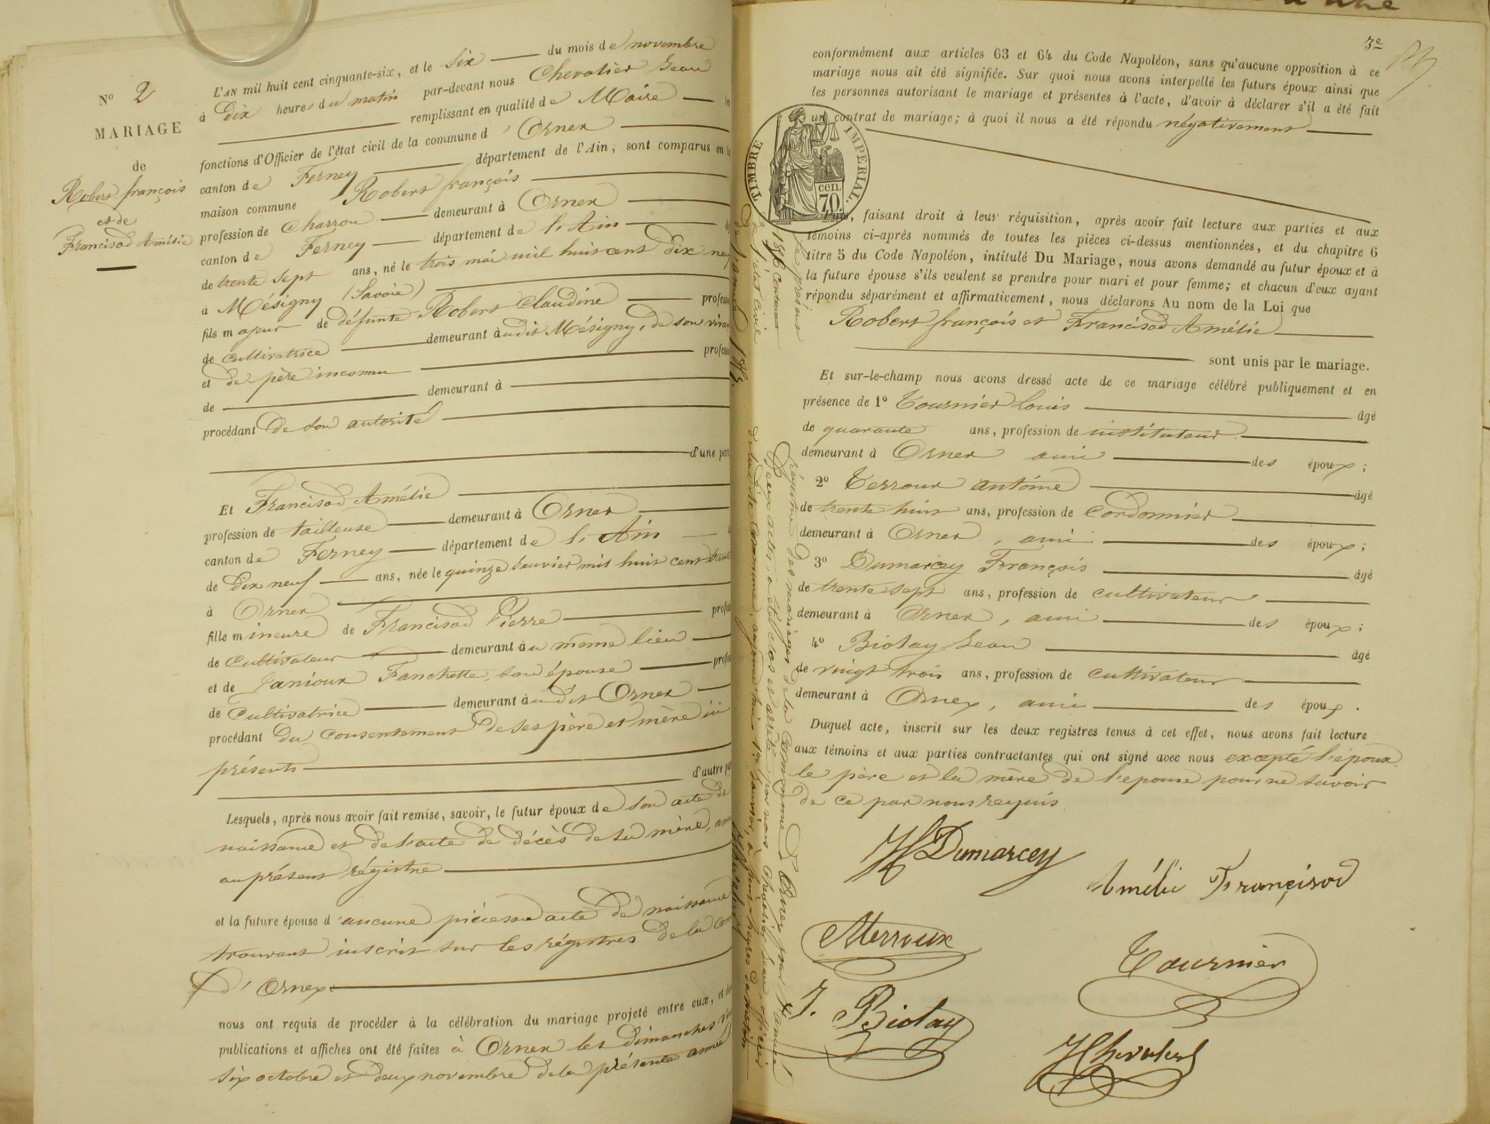 N° 2
MARIAGE
de
Robert françois
et de
Francisod Amélie
L'AN mil huit cent cinquante-six, et le six du mois de novembre
à dix heures du matin par-devant nous Chevalier Jean
remplissant en qualité de Maire
fonctions d'Officier de l'état civil de la commune d'Ornex
canton de Ferney département de l'Ain, sont comparus en la
maison commune Robert françois
profession de Charron demeurant à Ornex
canton de Ferney département de l'Ain
de trente sept ans, né le trois mai mil huit cent dix neuf
à Mésigny (Savoie)
fils majeur de défunte Robert Claudine profes
de cultivatrice demeurant audit Mésigny, de son vivan
et de père inconnu profes
de demeurant à
procédant de son autorité
d'une par
Et Francisod Amélie
profession de tailleuse demeurant à Ornex
canton de Ferney département de l'Ain
de dix neuf ans, née le quinze Janvier mil huit cent
à Ornex
fille mineure de Francisod Pierre profes
de Cultivateur demeurant au même lieu
et de Janioux Fanchette, son épouse profes
de Cultivatrice demeurant audit Ornex
procédant du consentement de ses père et mère ici
présents
d'autre pa
Lesquels, après nous avoir fait remise, savoir, le futur époux de son acte de
naissance et de l'acte de décès de sa mère,
au présent régistre
et la future épouse d'aucune pièce son acte de naissance
trouvant inscrit sur les régistres de la com
d'Ornex
nous ont requis de procéder à la célébration du mariage projeté entre eux, et
publications et affiches ont été faites à Ornex les dimanches vingt
six octobre et deux novembre de la présente année
3e
conformément aux articles 63 et 64 du Code Napoléon, sans qu'aucune opposition à ce
mariage nous ait été signifiée. Sur quoi nous avons interpellé les futurs époux ainsi que
les personnes autorisant le mariage et présentes à l'acte, d'avoir à déclarer s'il a été fait
un contrat de mariage; à quoi il nous a été répondu négativement
TIMBRE IMPERIAL
CEN.
70
faisant droit à leur réquisition, après avoir fait lecture aux parties et aux
témoins ci-après nommés de toutes les pièces ci-dessus mentionnées, et du chapitre 6
titre 5 du Code Napoléon, intitulé Du Mariage, nous avons demandé au futur époux et à
la future épouse s'ils veulent se prendre pour mari et pour femme; et chacun d'eux ayant
répondu séparément et affirmativement, nous déclarons Au nom de la Loi que
Robert françois et Francisod Amélie
sont unis par le mariage.
Et sur-le-champ nous avons dressé acte de ce mariage célébré publiquement et en
présence de 1° Tournier Louis âgé
de quarante ans, profession de instituteur
demeurant à Ornex ami des époux;
2° Terroux antoine âgé
de trente huit ans, profession de Cordonnier
demeurant à Ornex, ami des époux;
3° Dumarcey François âgé
de trente sept ans, profession de cultivateur
demeurant à Ornex, ami des époux;
4° Biolay Jean âgé
de vingt trois ans, profession de cultivateur
demeurant à Ornex, ami des époux.
Duquel acte, inscrit sur les deux registres tenus à cet effet, nous avons fait lecture
aux témoins et aux parties contractantes qui ont signé avec nous excepté l'époux
le père et la mère de l'épouse pour ne savoir
de ce par nous requis
Dumarcey
Amélie Françisod
Aterroux
Tournier
J. Biolay
JChevalier